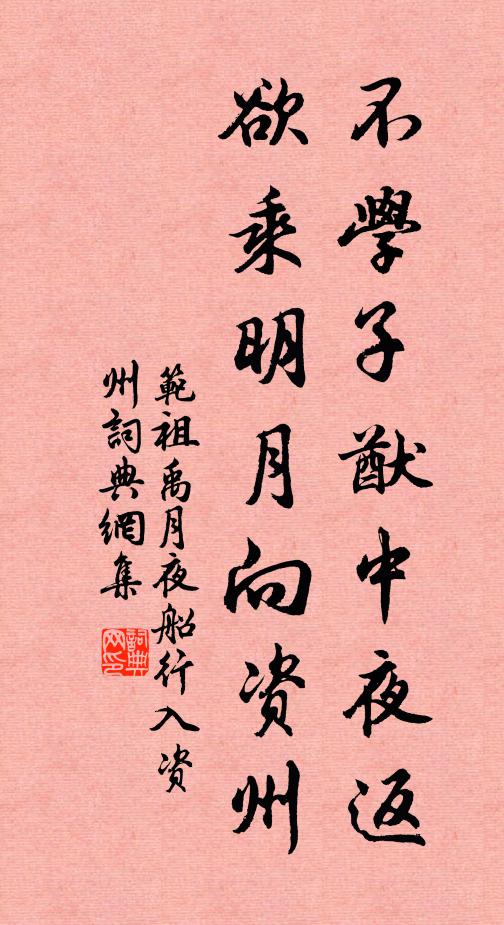 不學子猷中夜返
欲乘明月向资州
範祖禹月夜船行入资
州詞典網集
詞典网印